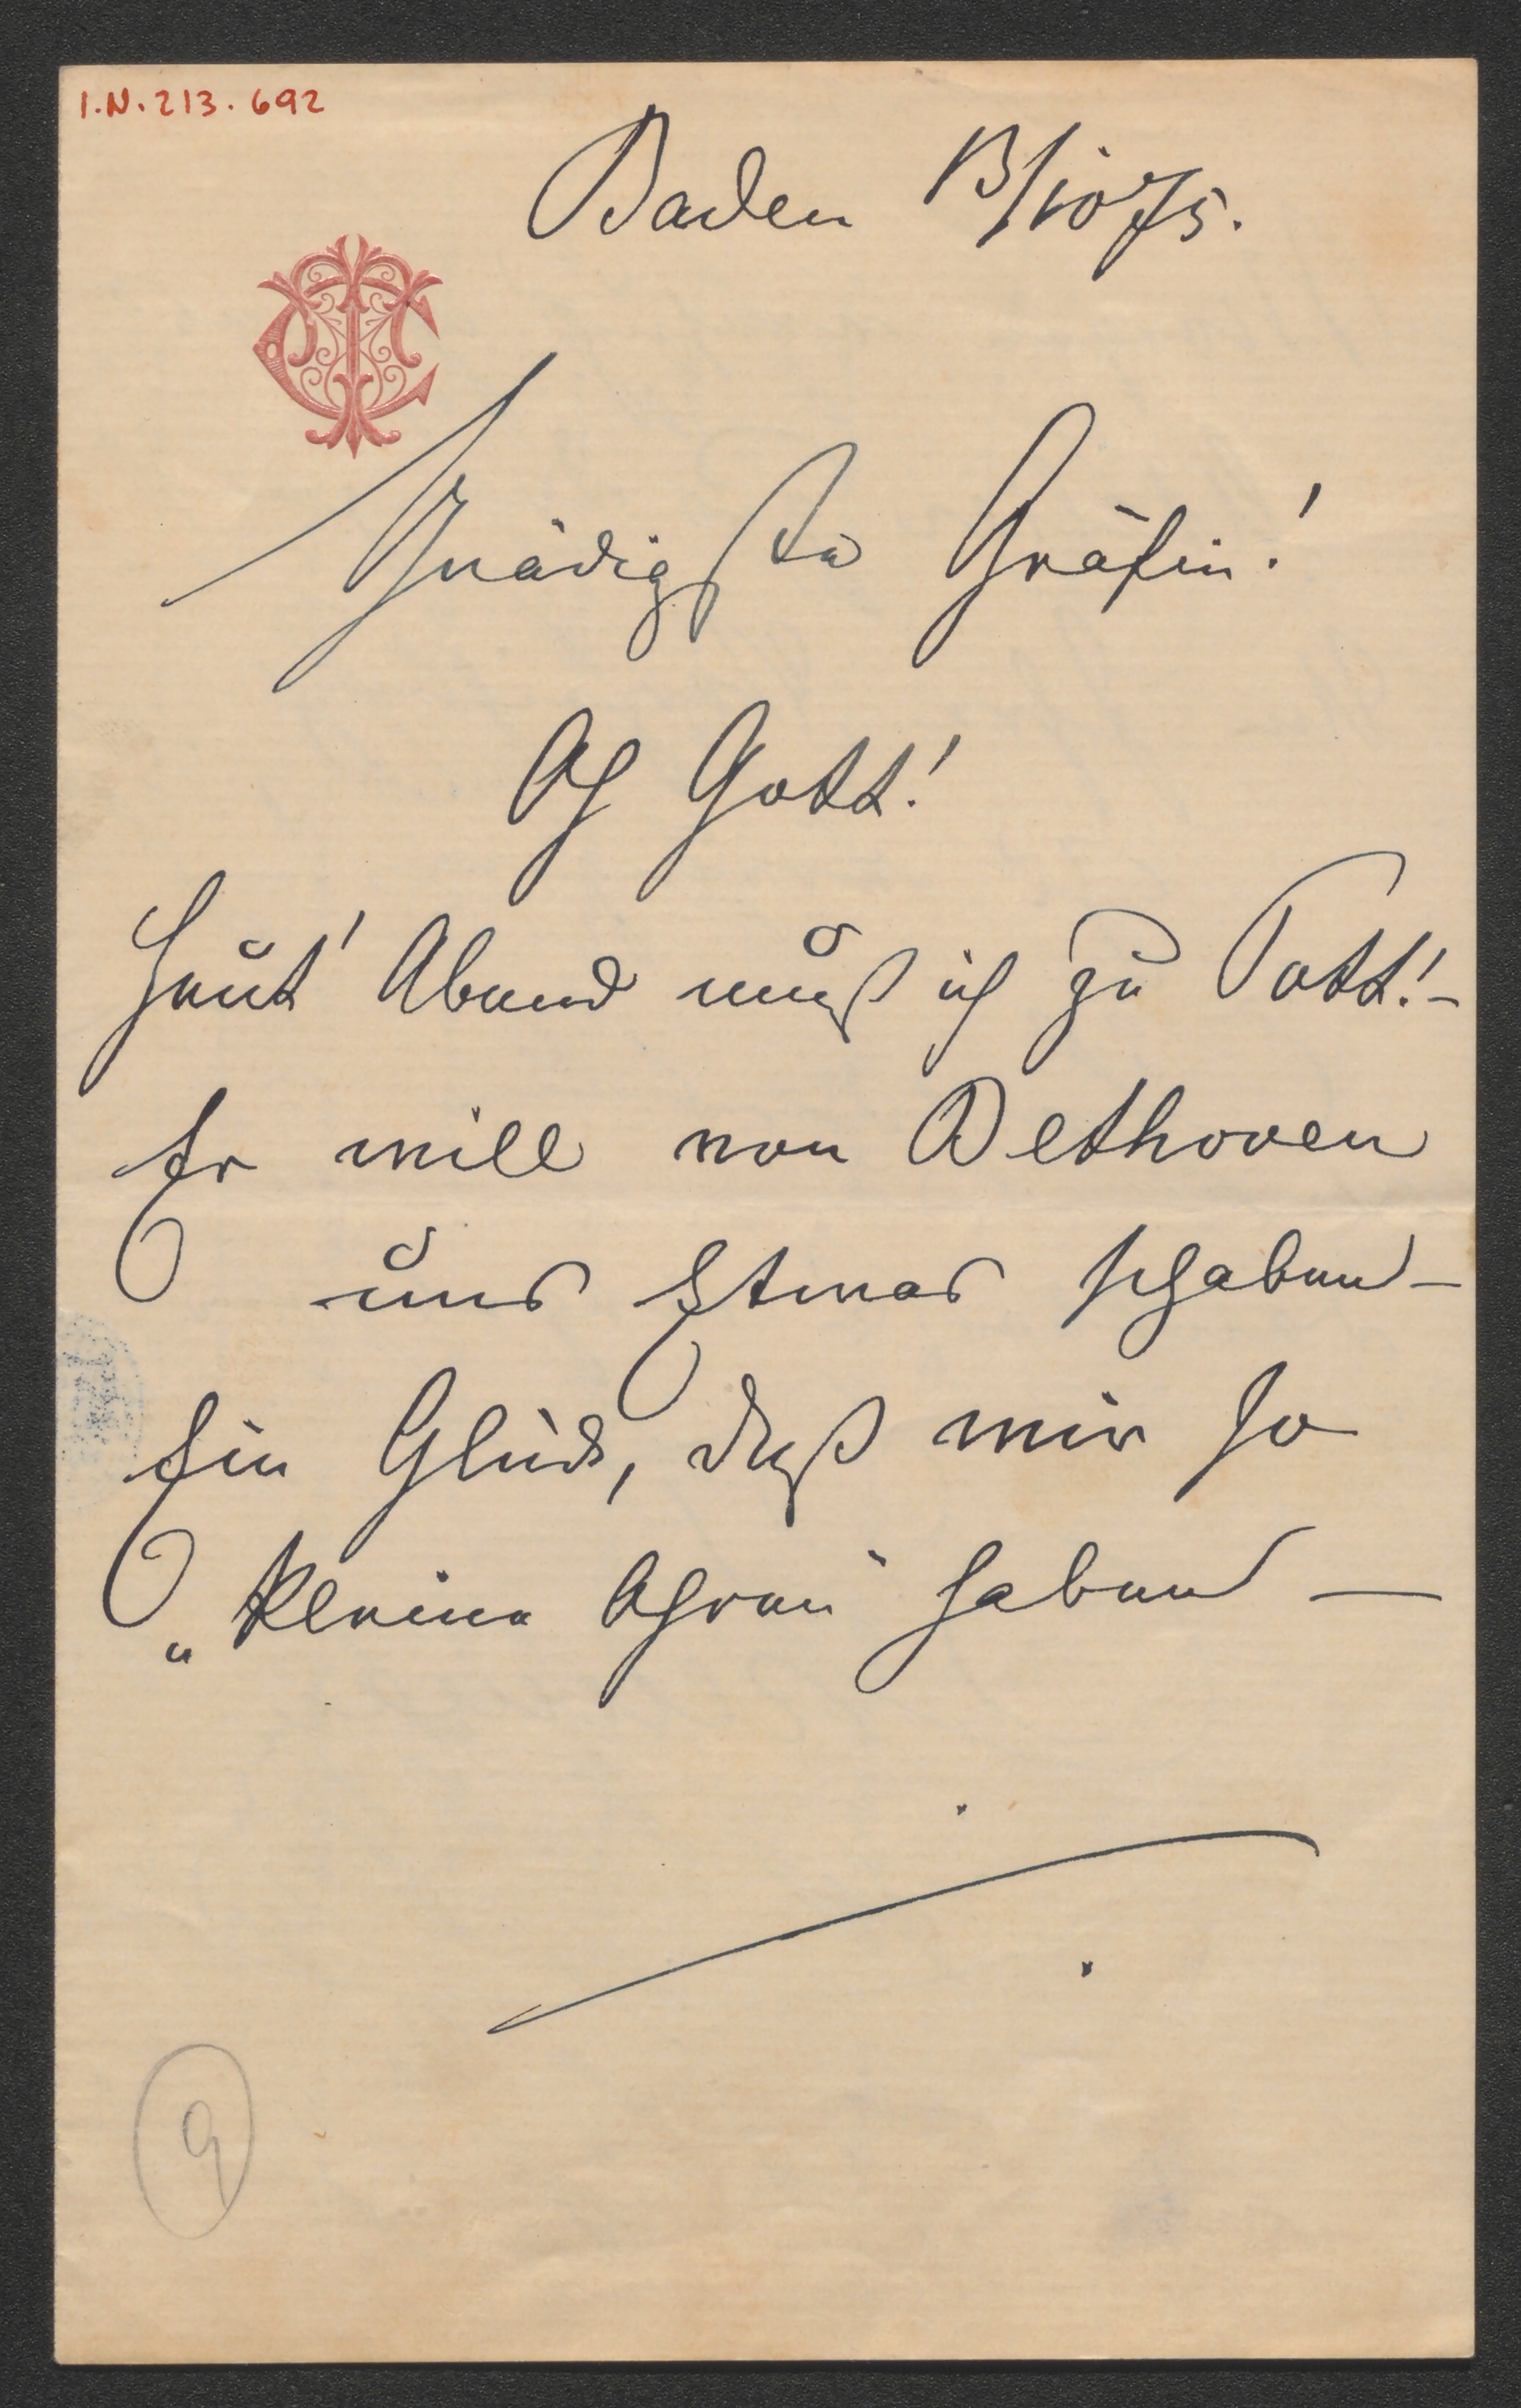 I.N. 213.692
Baden 13/10 75.
Gnädigste Gräfin!
Ach Gott!
Heut' Abend muß ich zu Pott!-
Er will von Bethoven
uns Etwas schaben-
Ein Glück, daß wir so
„kleine Ohren" haben —
9